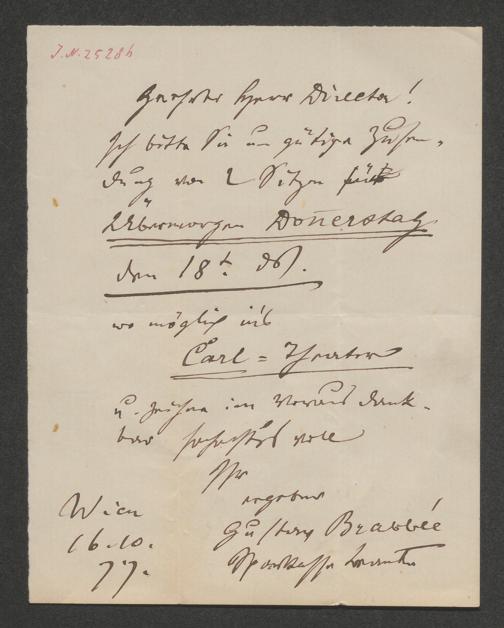 J.N. 25286
Geehrter Herr Director!
Ich bitte Sie um gütige Zusen-
dung von 2 Sitzen für
Übermorgen Donerstag
den 18t. ds.
wo möglich in's
Carl=Theater
u. zeichne im Voraus dank-
bar hochachtungsvoll
Ihr
ergebner
Gustav Brabbée
Wien
16.10.
77.